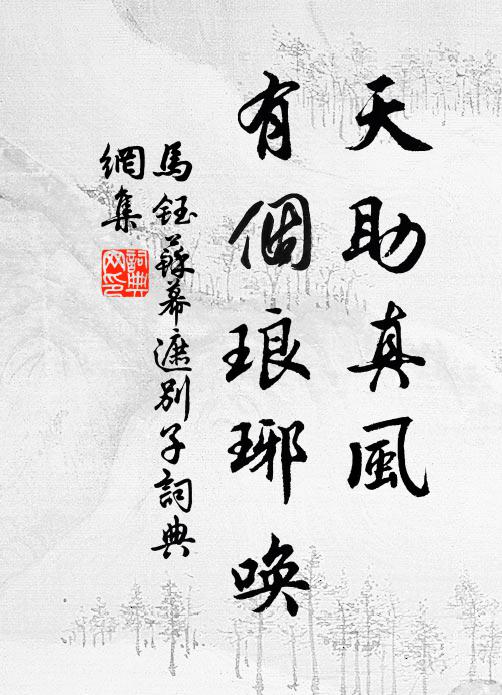 天助真風
有個琅琊喚
馬鈺蘇幕遮別子詞典
網集
詞典
网印